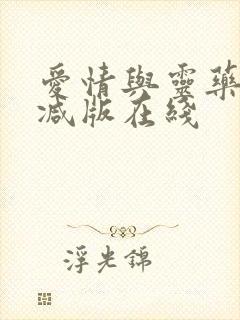 愛情與靈藥
减版在綫
浮光錦